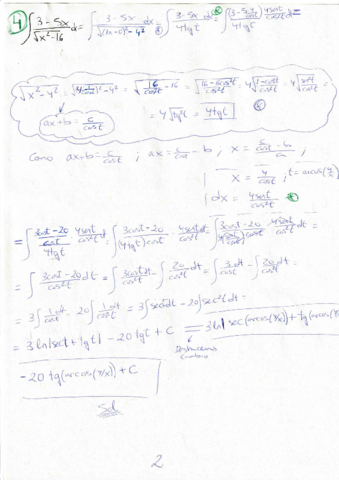 4) ∫ (3-5x)/√(x²-16) dx = ∫ (3-5x)/√((1x-0)²-4²) dx = ∫ (3-5x)/(4tgt) = ∫ (3-5·4/cost)/(4tgt) · 4sent/cos²t dt =
√(x²-4²) = √((4/cost)²-4²) = √(16/cos²t - 16) = √((16-16cos²t)/cos²t) = 4√((1-cos²t)/cos²t) = 4√(sen²t/cos²t) =
= 4√tg²t = 4tgt
ax+b = c/cost
Como ax+b = c/cost ; ax = c/cost - b , x = (c/cost - b)/a ,
x = 4/cost ; t = arcos(4/x)
dx = 4sent/cos²t
= ∫ ((3cost-20)/cost)/(4tgt) · 4sent/cos²t dt = ∫ (3cost-20)/((4tgt)cost) · 4sent/cos²t dt = ∫ (3cost-20)/((4sent/cost)cost) · 4sent/cos²t dt =
= ∫ (3cost-20)/cos²t dt = ∫ 3cost/cos²t dt - ∫ 20/cos²t dt = ∫ 3/cost dt - ∫ 20/cos²t dt =
= 3∫ 1/cost dt - 20∫ 1/cos²t dt = 3∫ sect dt - 20∫ sec²t dt =
= 3 ln|sect + tgt| - 20 tgt + C = 3 ln|sec(arcos(4/x)) + tg(arcos(4/x)
Deshacemos
cambio
- 20 tg(arcos(4/x)) + C
Sol
2